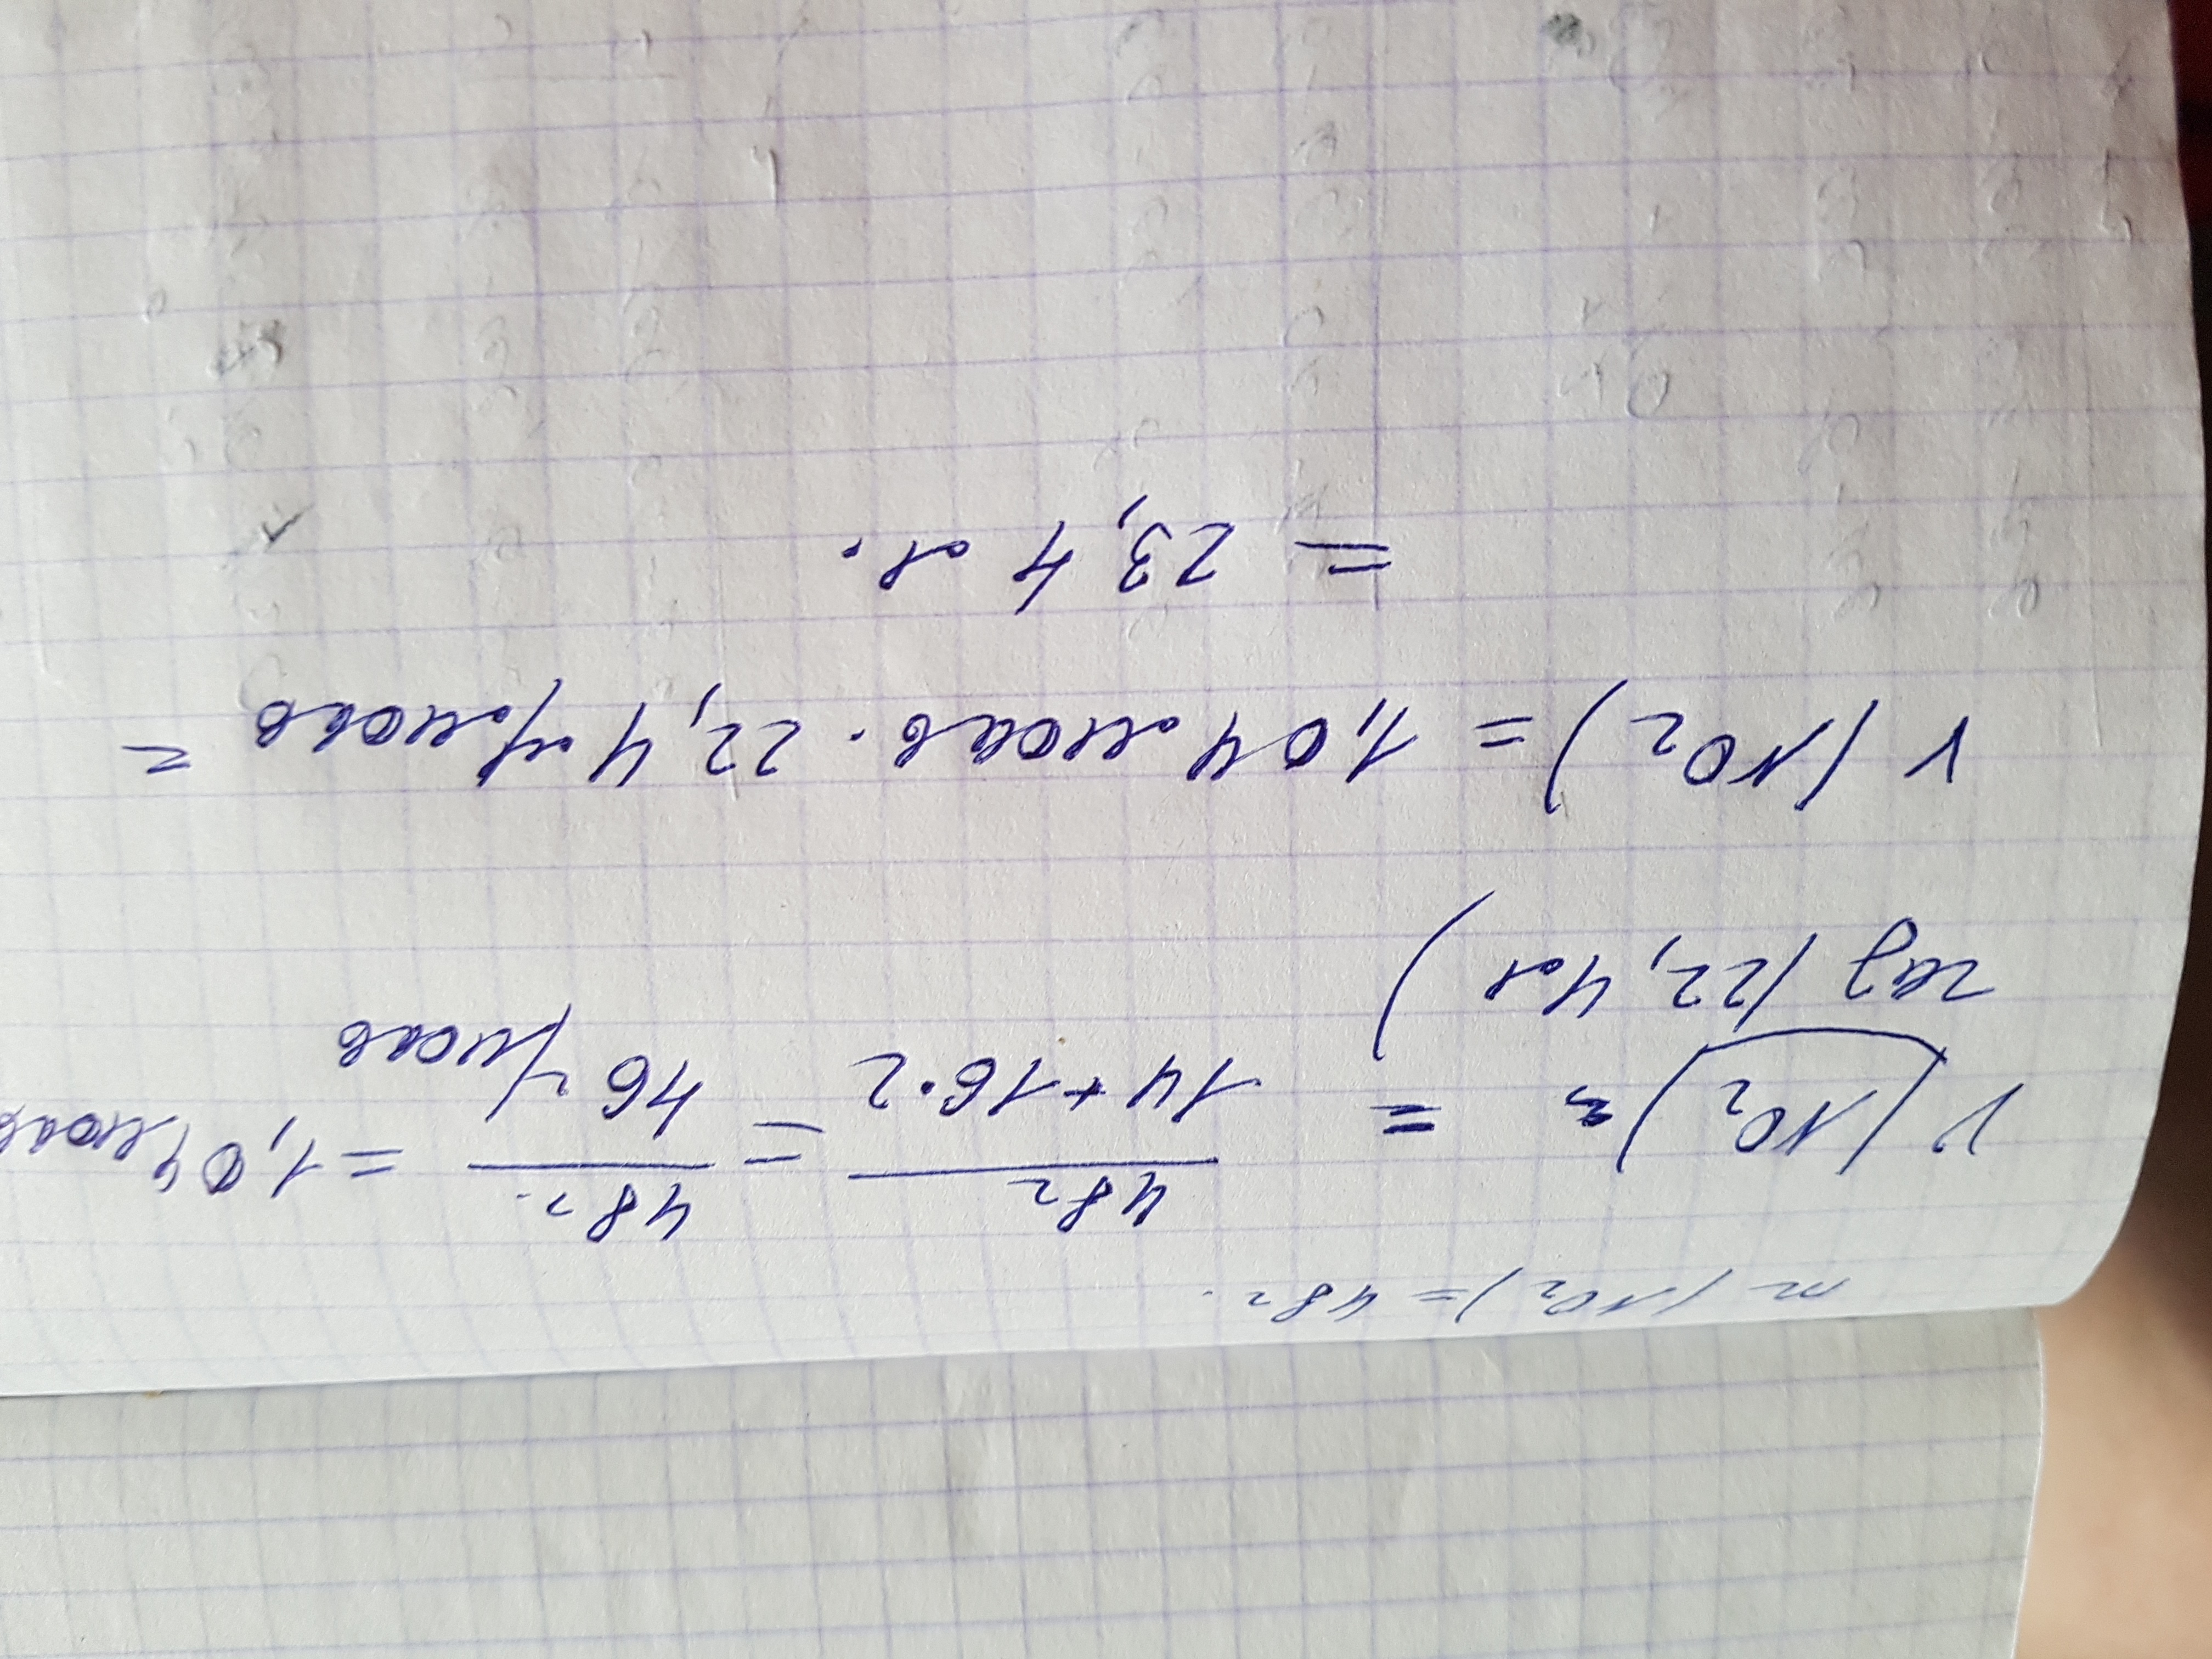 m (NO2) = 48г.
V (NO2) = 48г / 14+16·2 = 48г. / 46 г/моль = 1,04 моль
газ (22,4л)
V (NO2) = 1,04 моль · 22,4 л/моль =
= 23,4 л.